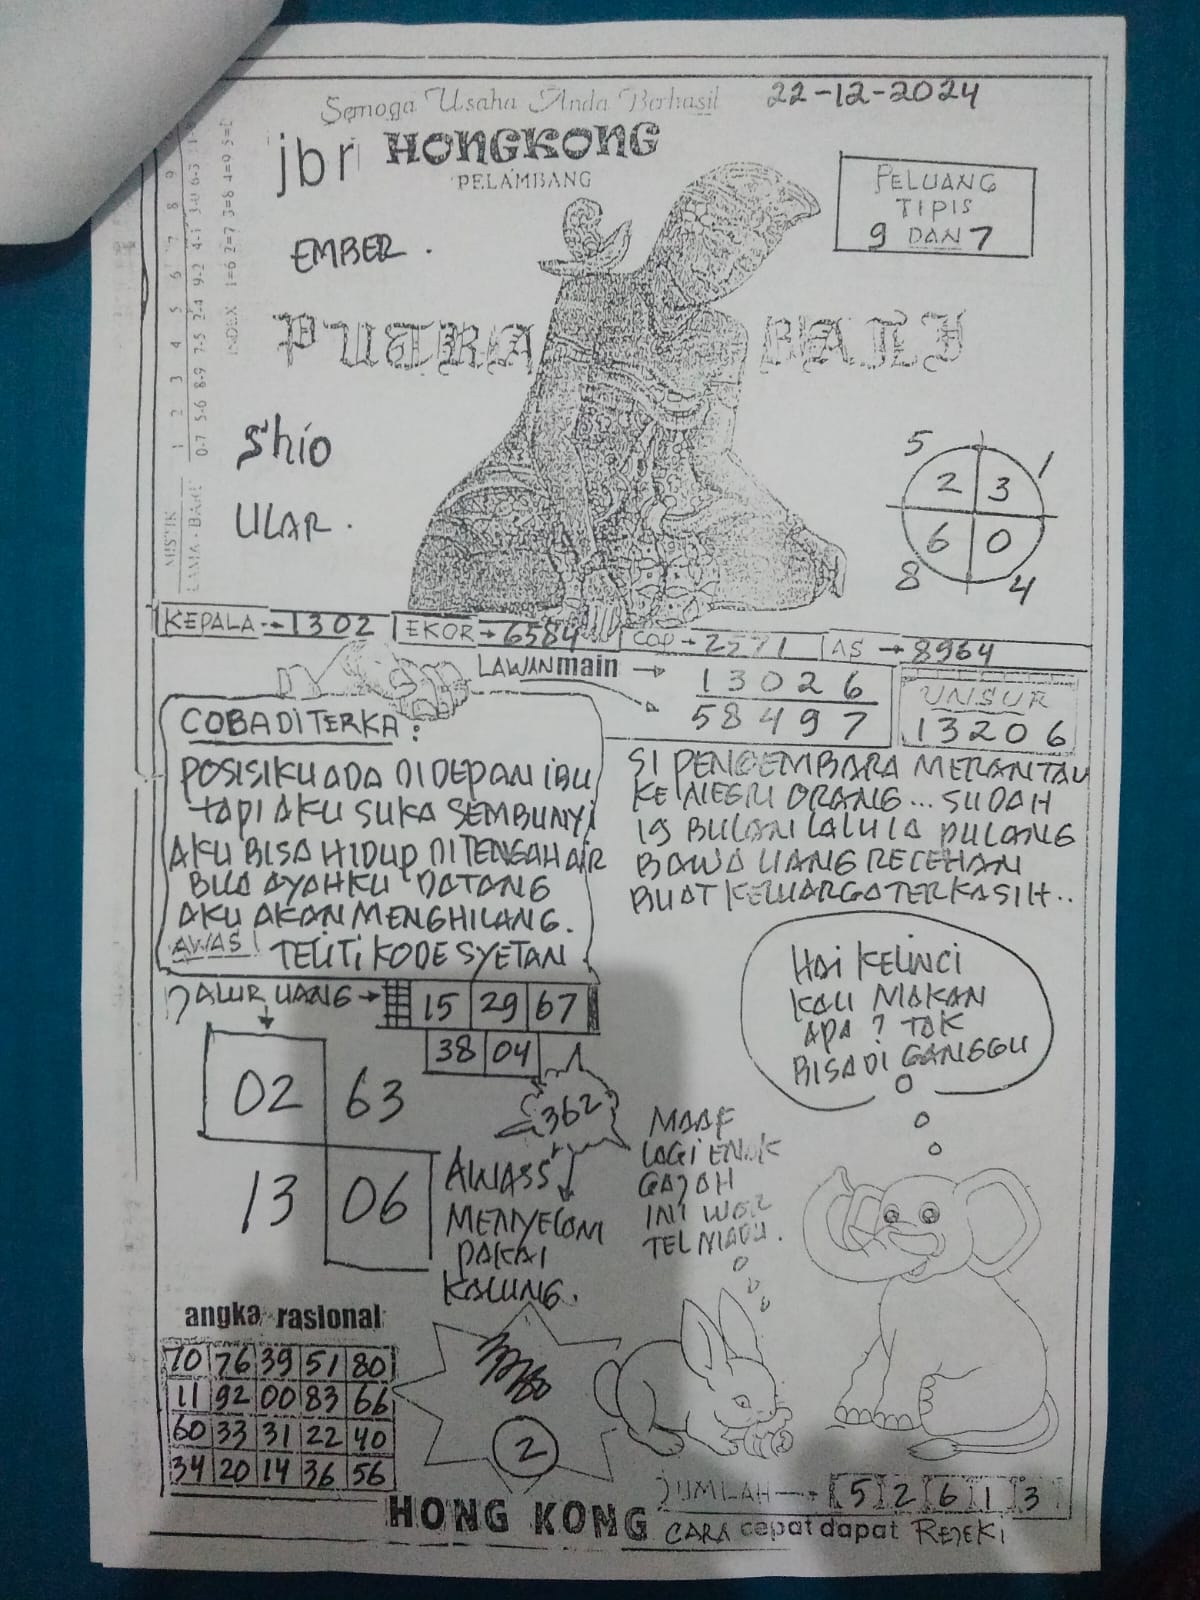 Semoga Usaha Anda Berhasil
22-12-2024
jbr HONGKONG
PELAMBANG
PELUANG
TIPIS
9 DAN 7
EMBER.
PUTRA BALI
Shio
ULAR.
MISTIK
LAMA - BARU
1 2 3 4 5 6 7 8 9
0-7 5-6 8-9 7-5 2-4 9-2 4-1 3-0 6-3
INDEX 1=6 2=7 3=8 4=9 5=0
5 1
2 3
6 0
8 4
KEPALA → 1302
EKOR → 6584
COP → 2571
AS → 8964
LAWAN main →
13026
58497
UNSUR
13206
COBA DI TERKA:
POSISIKU ADA DI DEPAN IBU
TAPI AKU SUKA SEMBUNYI
AKU BISA HIDUP DI TENGAH AIR
BILA AYAHKU DATANG
AKU AKAN MENGHILANG.
AWAS! TELITI KODE SYETAN
SI PENGEMBARA MERANTAU
KE NEGRI ORANG... SUDAH
19 BULAN LALU IA PULANG
BAWA UANG RECEHAN
BUAT KELUARGA TERKASIH..
JALUR UANG → 15 29 67
38 04
02 63
13 06
362
AWASS
MENYELOM
PAKAI
KALUNG.
HAI KELINCI
KAU MAKAN
APA? TAK
BISA DI GANGGU
MAAF
LAGI ENAK
GAJAH
INI WOR
TEL MADU.
angka rasional
70 76 39 51 80
11 92 00 83 66
60 33 31 22 40
34 20 14 36 56
2
JUMLAH → 5 2 6 1 3
HONG KONG
CARA cepat dapat REJEKI